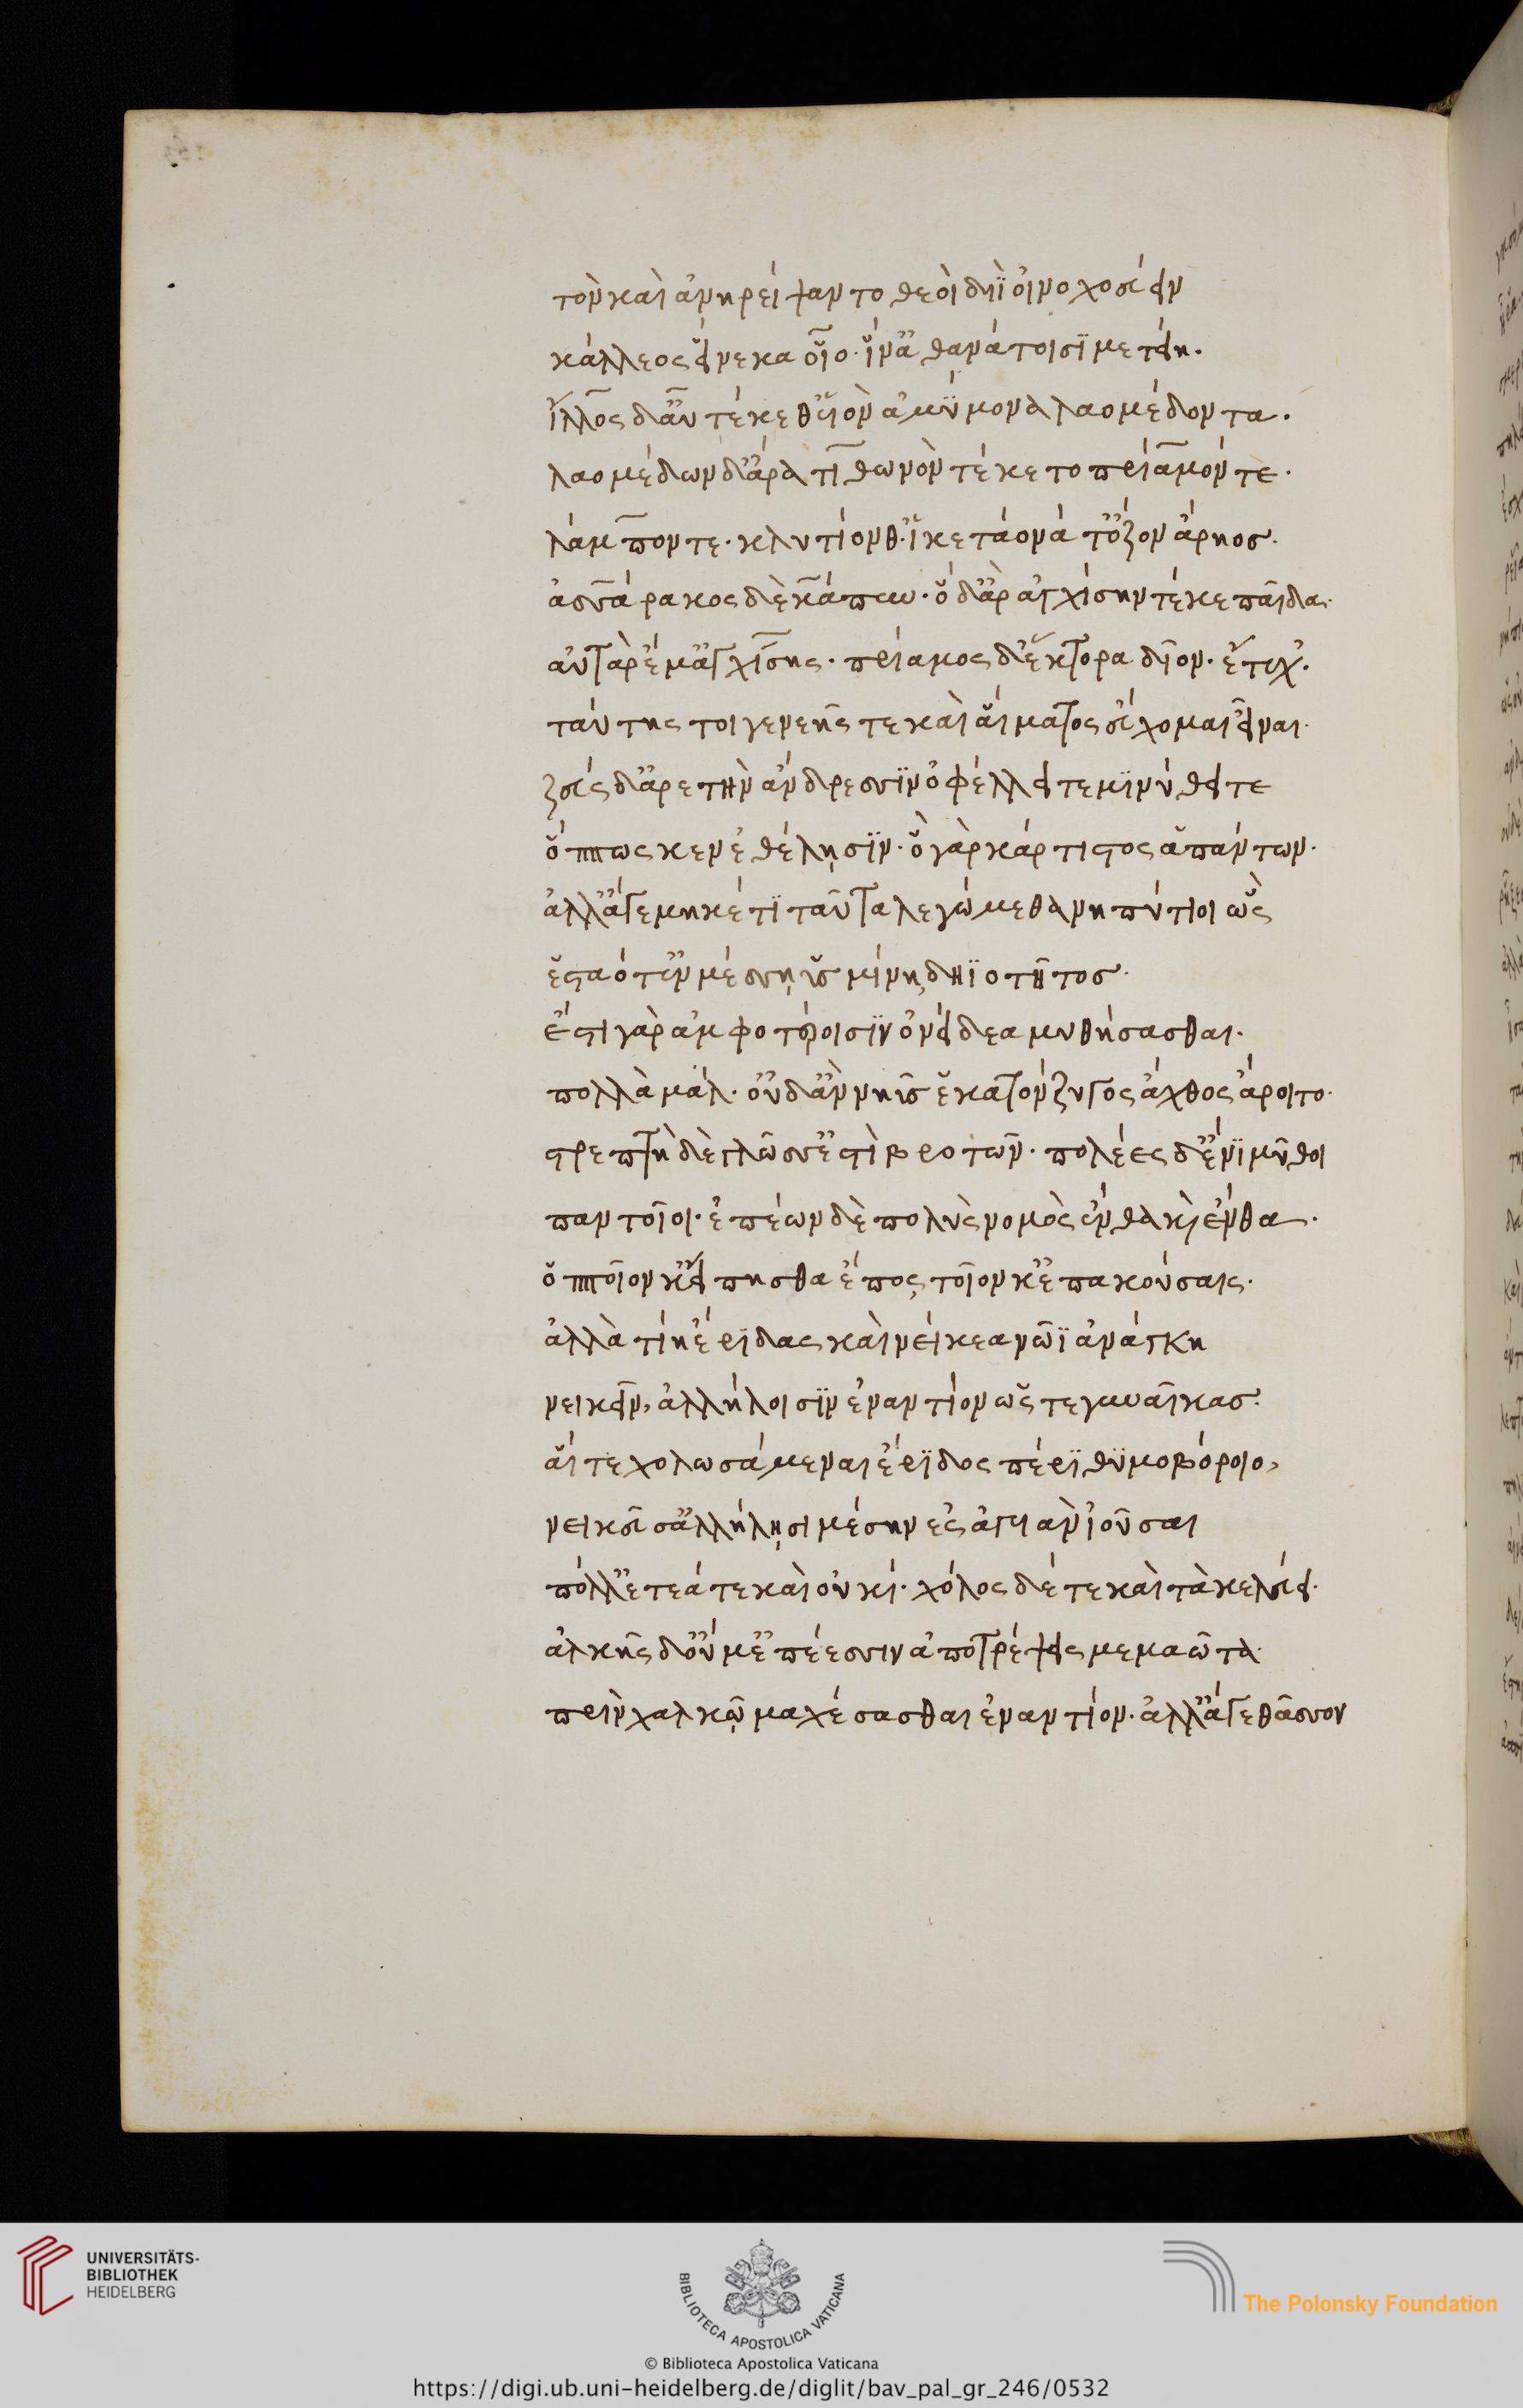 τὸν καὶ ἀνηρείψαντο θεοὶ διῒ οἰνοχοεύειν
κάλλεος εἵνεκα οἷο· ἵν' ἀθανάτοισϊ μετείη.
ἶλλος δ' αὖ τέκεθ' ὑϊὸν ἀμύμονα λαομέδοντα.
λαομέδων δ' ἄρα τιθωνὸν τέκετο πρίαμόν τε.
λάμπον τε. κλυτίον θ'. ἱκετάονά τ' ὄζον ἄρηος.
ἀσσάρακος δὲ κάπυν. ὁ δ' ἂρ ἀγχίσην τέκε παῖδα.
αὐτὰρ ἔμ' ἀγχίσης. πρίαμος δ' ἕκτορα δῖον. ἔτεχ'.
ταύτης τοι γενεῆς τε καὶ αἵματος εὔχομαι εἶναι.
ζεὺς δ' ἀρετὴν ἄνδρεσσϊν ὀφέλλει τε μϊνύθει τε
ὅππως κεν ἐθέλῃσϊν. ὃ γὰρ κάρτιστος ἁπάντων.
ἀλλ' ἄγε μηκέτϊ ταῦτα λεγώμεθα νηπύτιοι ὣς
ἕσταότ' ἐν μέσσῃ ὑσμίνῃ δηϊοτῆτος.
ἔστι γὰρ ἀμφοτέροισϊν ὀνείδεα μυθήσασθαι.
πολλὰ μάλ. οὐδ' ἂν νηῦς ἑκατόνζυγος ἄχθος ἄροιτο.
στρεπτὴ δὲ γλῶσσ' ἐστὶ βροτῶν. πολέες δ' ἔνϊ μῦθοι
παντοῖοι. ἐπέων δὲ πολὺς νομὸς ἔνθα κὶ ἔνθα.
ὁπποῖον κ' εἴπησθα ἔπος, τοῖον κ' ἐπακούσαις.
ἀλλὰ τίη ἔρϊδας καὶ νείκεα νῶϊ ἀνάγκη
νεικεῖν, ἀλλήλοισϊν ἐναντίον ὥς τε γυναῖκας.
αἵ τε χολωσάμεναι ἔρϊδος πέρϊ θϋμοβόροιο,
νεικεῦσ' ἀλλήλῃσι μέσην ἐς ἄγυιαν ἰοῦσαι
πόλλ' ἐτεά τε καὶ οὐκί. χόλος δέ τε καὶ τὰ κελεύει.
ἀλκῆς δ' οὔ μ' ἐπέεσσιν ἀποτρέψεις μεμαῶτα
πρὶν χαλκῷ μαχέσασθαι ἐναντίον. ἀλλ' ἄγε θᾶσσον
UNIVERSITÄTS-
BIBLIOTHEK
HEIDELBERG
BIBLIOTECA APOSTOLICA VATICANA
The Polonsky Foundation
© Biblioteca Apostolica Vaticana
https://digi.ub.uni-heidelberg.de/diglit/bav_pal_gr_246/0532